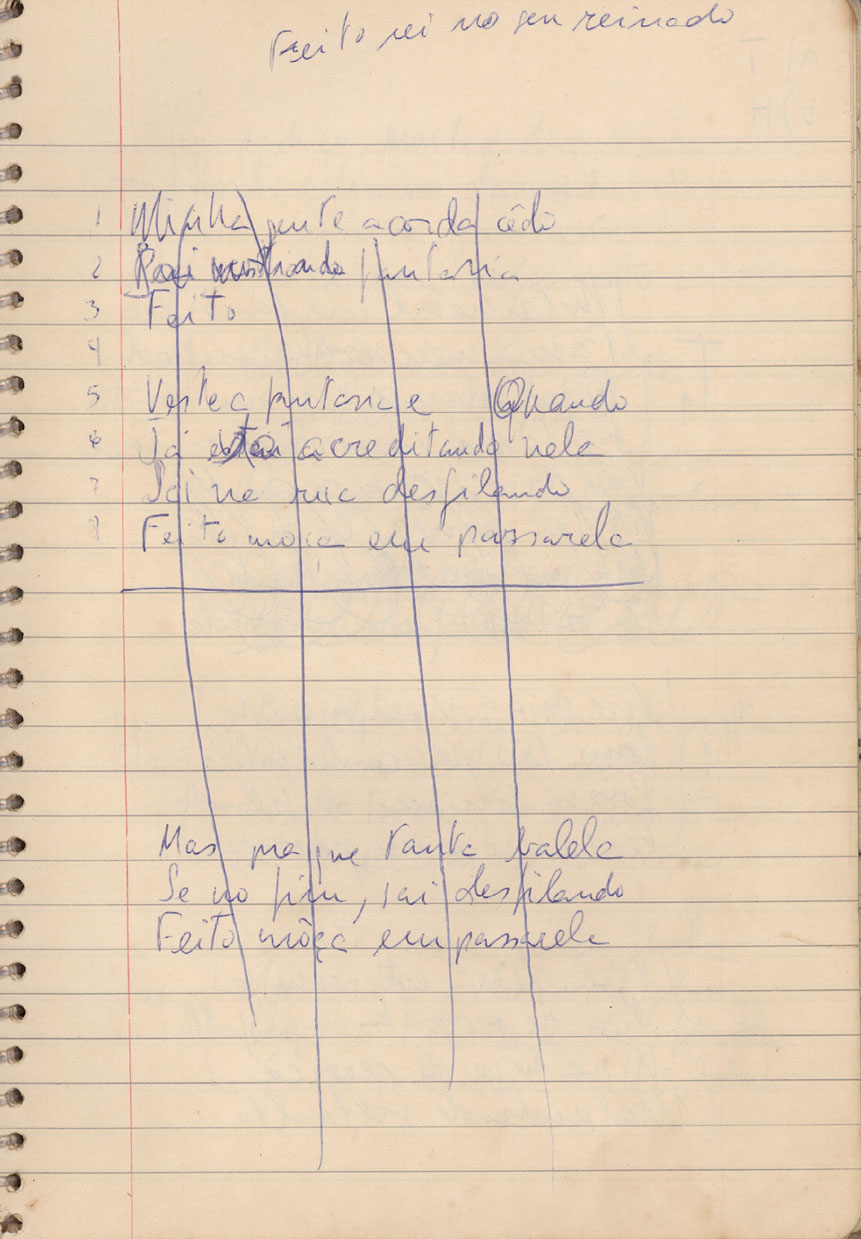 Feito rei no seu reinado
1 Minha gente acorda cêdo
2 fantasia
3 Feito
4
5 Veste a fantasia e Quando
6 Já está acreditando nela
7 Sai na rua desfilando
8 Feito moça em passarela
Mas pra que tanta balela
Se no fim, sai desfilando
Feito môça em passarela